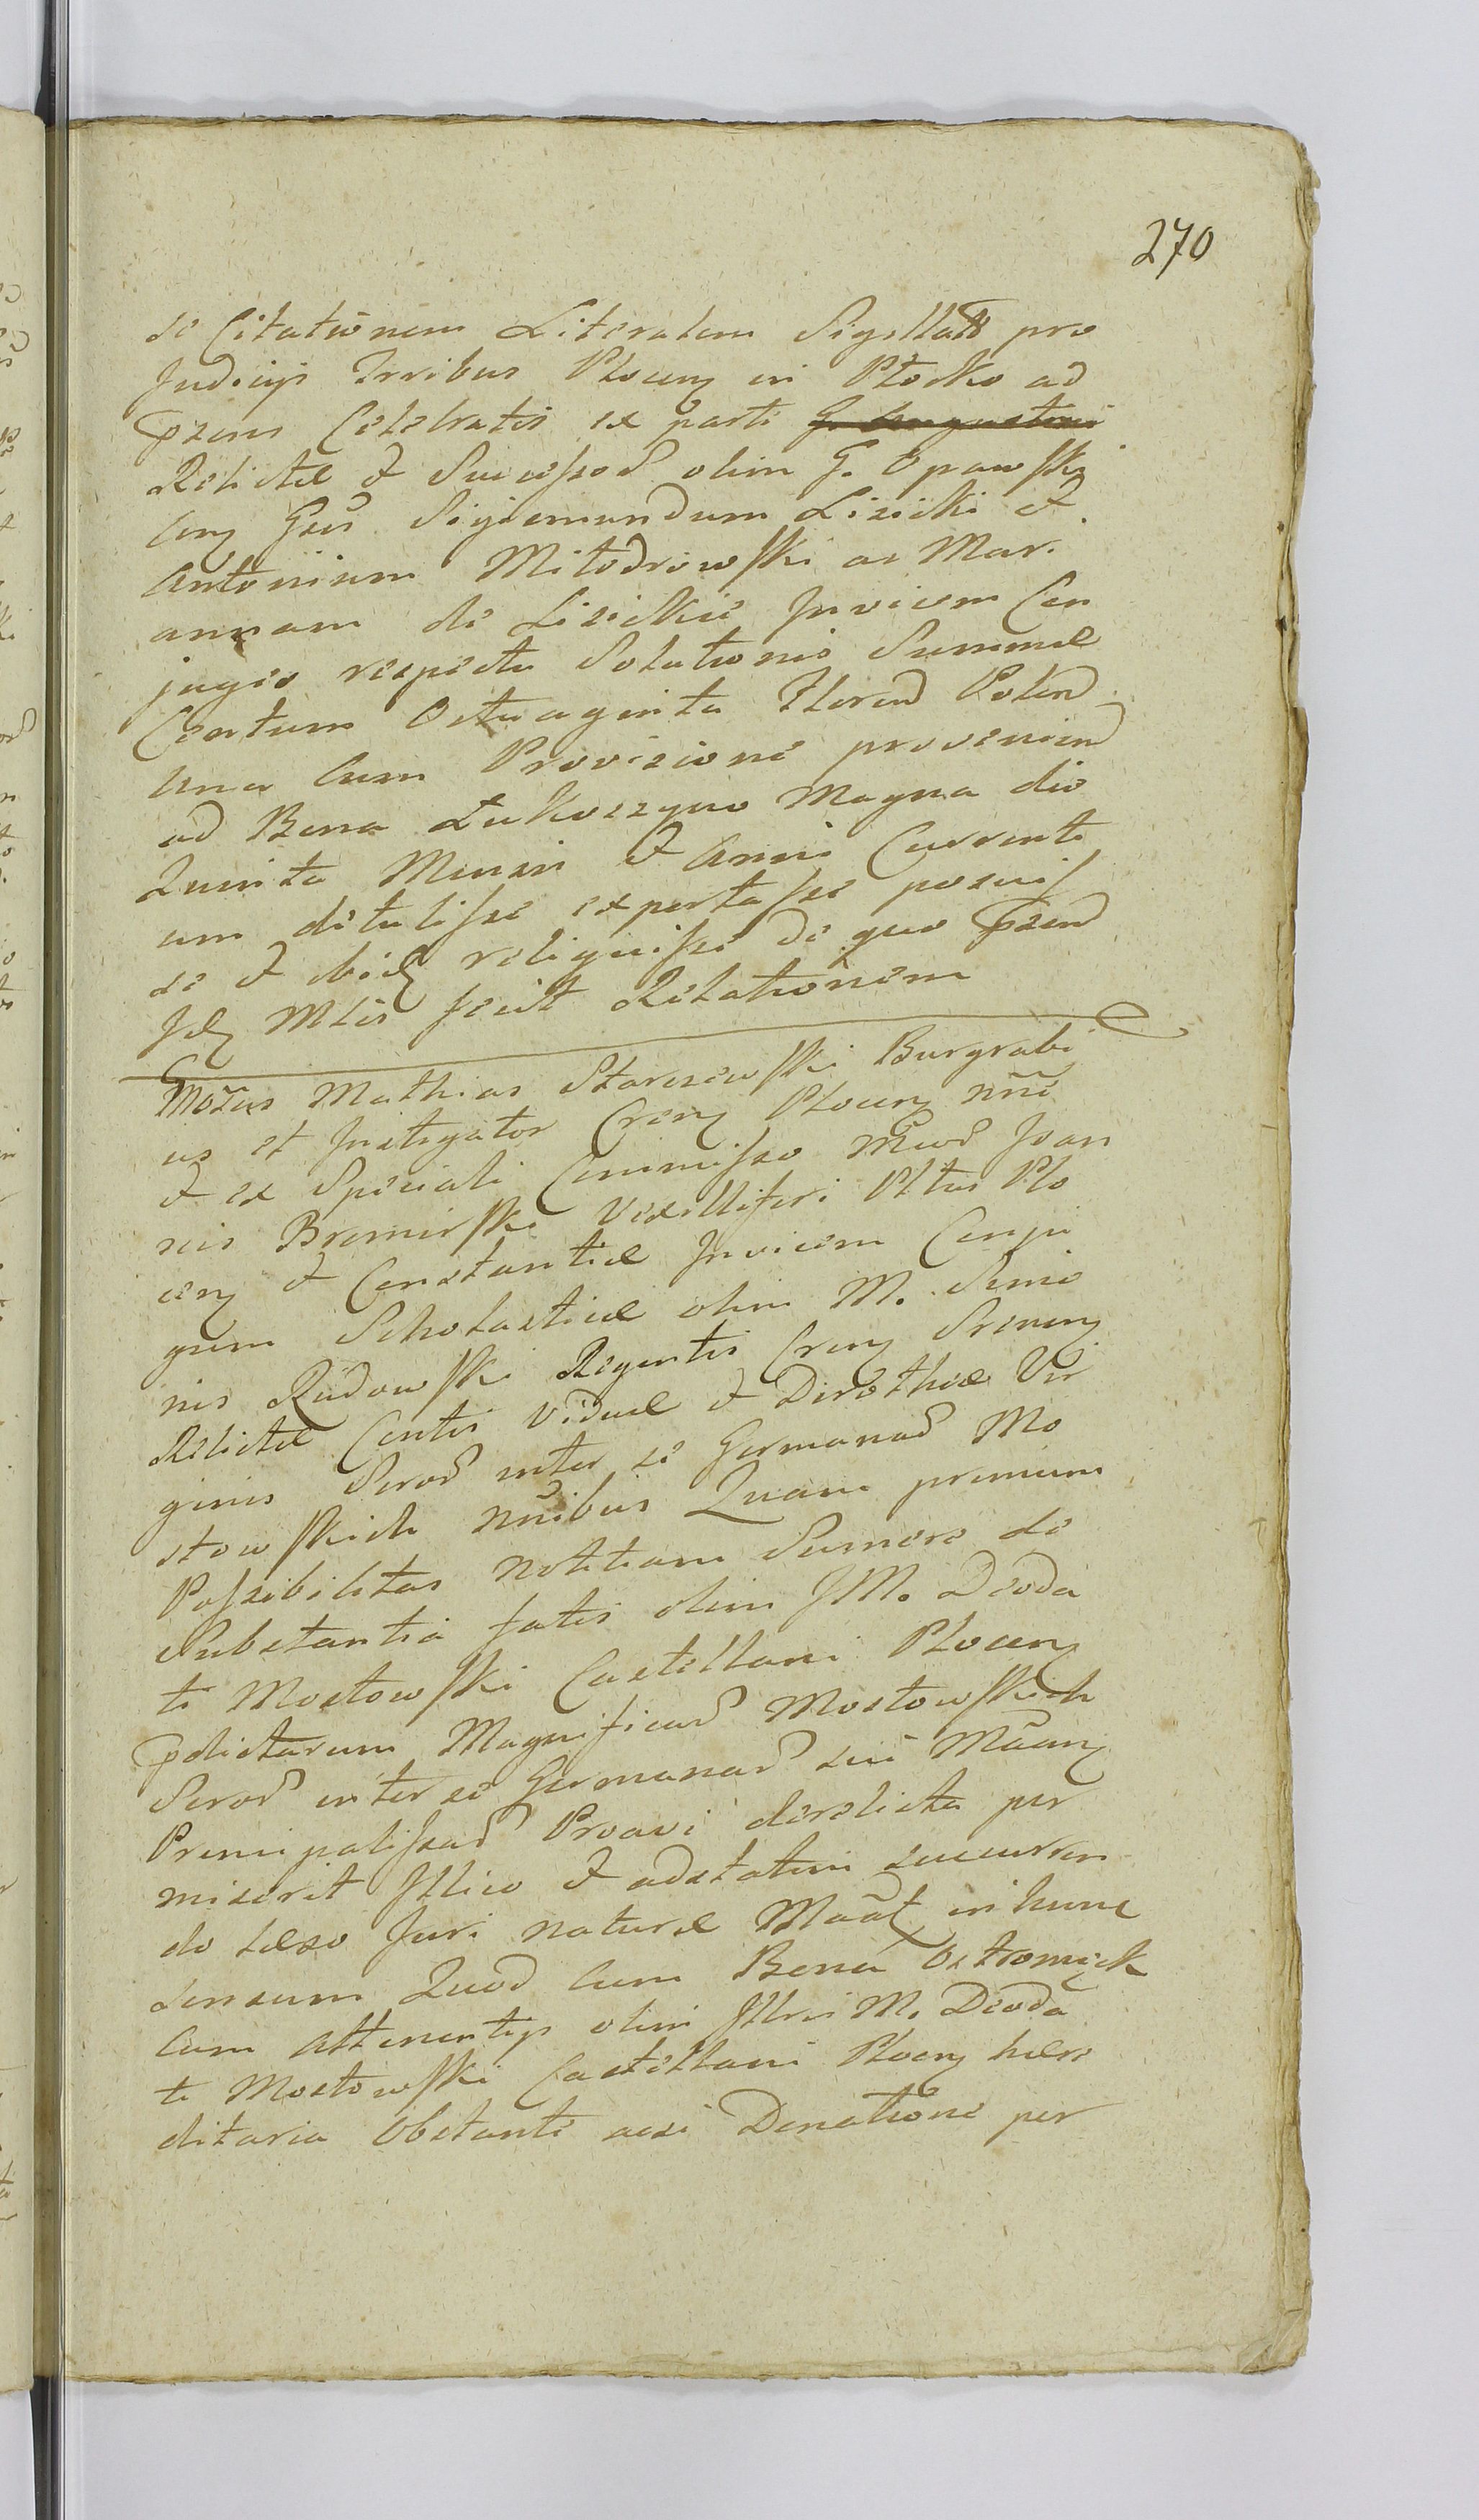 270
se Citationem Literalem Sigillatã pro
Judicijs Trribus Plocen in Płocko ad
pzens Celebratis ex parte G. Augustini
Relictæ et Successoꝝ olim G. Opawski
Con Gsũ Sigismundum Lisicki et
Antonium Miłodrowski ac Mar.
annam de Lisickie Invicem Con
juges respectu Solutionis Summæ
Centum Octuaginta Floren Polon
una cum Provisione provenien
ad Bona Łukoszyno Magna die
Quinta Mensis et Anni Currenti
um detulisse exportasse posuis
se et ibidẽ reliquisse de quo pzend
Idẽ Mlis fecit Relationem
Mõtus Mathias Starczewski Burgrabi
us et Instigator Cren Plocen nñe
et ex Speciali Commisso Mcoꝝ Joan
nis Bromirski Vexilliferi Pltus Plo
cen et Constantiæ Invicem Conju
gum Scholasticæ olim M. Simo
nis Rudowski Regentis Cren Srenen
Relictæ Contis Viduæ et Dorotheæ Vir
ginis Soroꝝ inter se Germanaꝝ Mo
stowskich nñibus Quam primum
Possibilitas notitiam Sumere de
Substantia fatis olim JM. Deoda
ti Mostowski Castellani Plocen
pdictarum Magnificaꝝ Mostowskich
Soroꝝ inter se Germanaꝝ sui Mãan
Principalissaꝝ Proavi derelicta per
miserit Illico et adstatim succurren
do læso Juri naturæ Mãat in hunc
sensum Quod cum Bona Ostromęck
cum Attinentijs olim Illris M. Deoda
ti Mostowski Castellani Plocen hære
ditaria Obstante acsi Donatione per